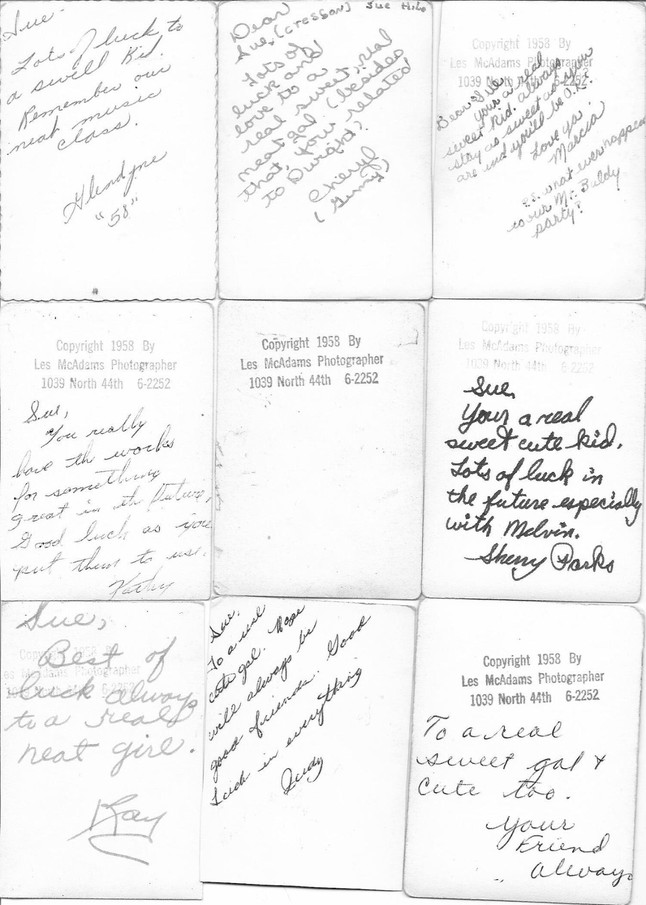 Sue
Lots of luck to
a swill kid.
Remember our
neat music
class.
Glendyne
"58"
Dear
Sue, (Cresson) Sue Hilo
Lots of
luck and
love to a
real sweet, real
neat gal (besides
that, your related
to Durard)
Cheryl
(Ginny)
Copyright 1958 By
Les McAdams Photographer
Dear Sue
your a real
sweet kid. always
stay as sweet as you
are and you'll be O.K.
Love ya
Marcia
P.S. what ever happened
to our Mr. Baldy
party?
Copyright 1958 By
Les McAdams Photographer
1039 North 44th 6-2252
Sue,
You really
have the works
for something
great in the future,
Good luck as you
put them to use.
Kathy
Copyright 1958 By
Les McAdams Photographer
1039 North 44th 6-2252
Copyright 1958 By
Les McAdams Photographer
1039 North 44th 6-2252
Sue,
Your a real
sweet cute kid.
Lots of luck in
the future especially
with Melvin.
Sherry Parks
Sue,
Les McAdams Photographer
Best of
luck always
to a real
neat girl.
Kay
Sue,
To a real
cute gal. Hope
will always be
good friends. Good
Luck in everything
Judy
Copyright 1958 By
Les McAdams Photographer
1039 North 44th 6-2252
To a real
sweet gal &
cute too.
Your
Friend
Always